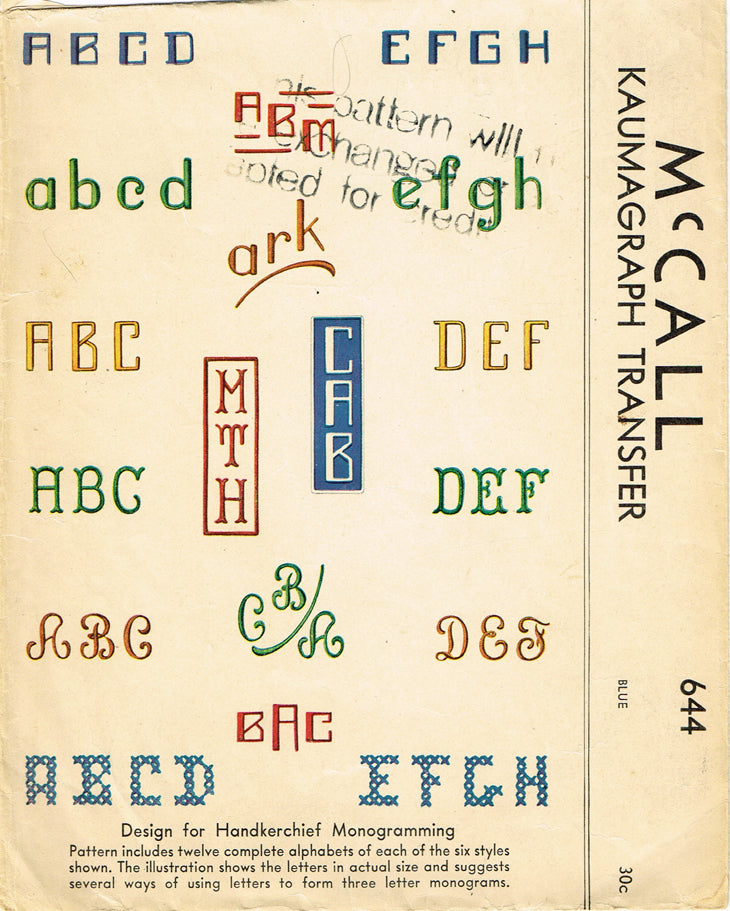 A B C D E F G H
A B M
pattern will
exchanged
for credit
a b c d e f g h
ark
A B C D E F
C A B
M T H
A B C D E F
C B A
A B C D E F
B A C
A B C D E F G H
Design for Handkerchief Monogramming
Pattern includes twelve complete alphabets of each of the six styles
shown. The illustration shows the letters in actual size and suggests
several ways of using letters to form three letter monograms.
McCALL
KAUMAGRAPH TRANSFER
644
BLUE
30c